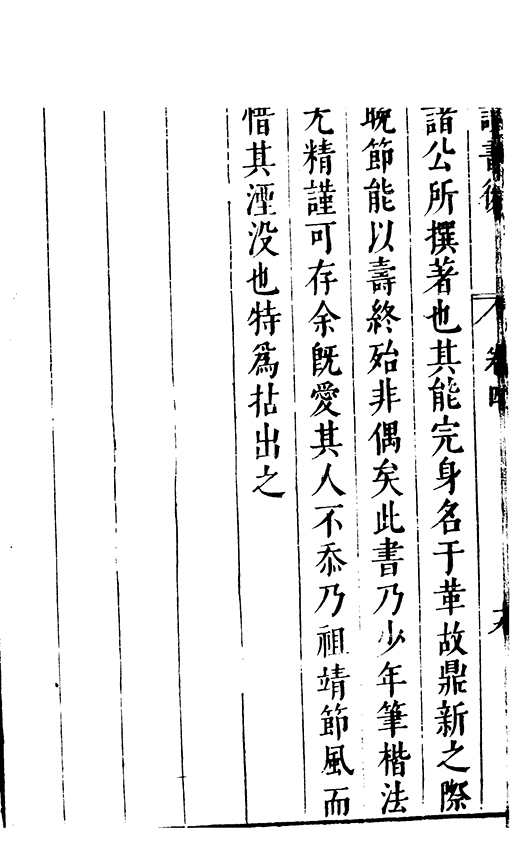 讀書後 卷四
諸公所撰著也其能完身名于革故鼎新之際
晚節能以壽終殆非偶矣此書乃少年筆楷法
尤精謹可存余既愛其人不忝乃祖靖節風而
惜其湮没也特爲拈出之